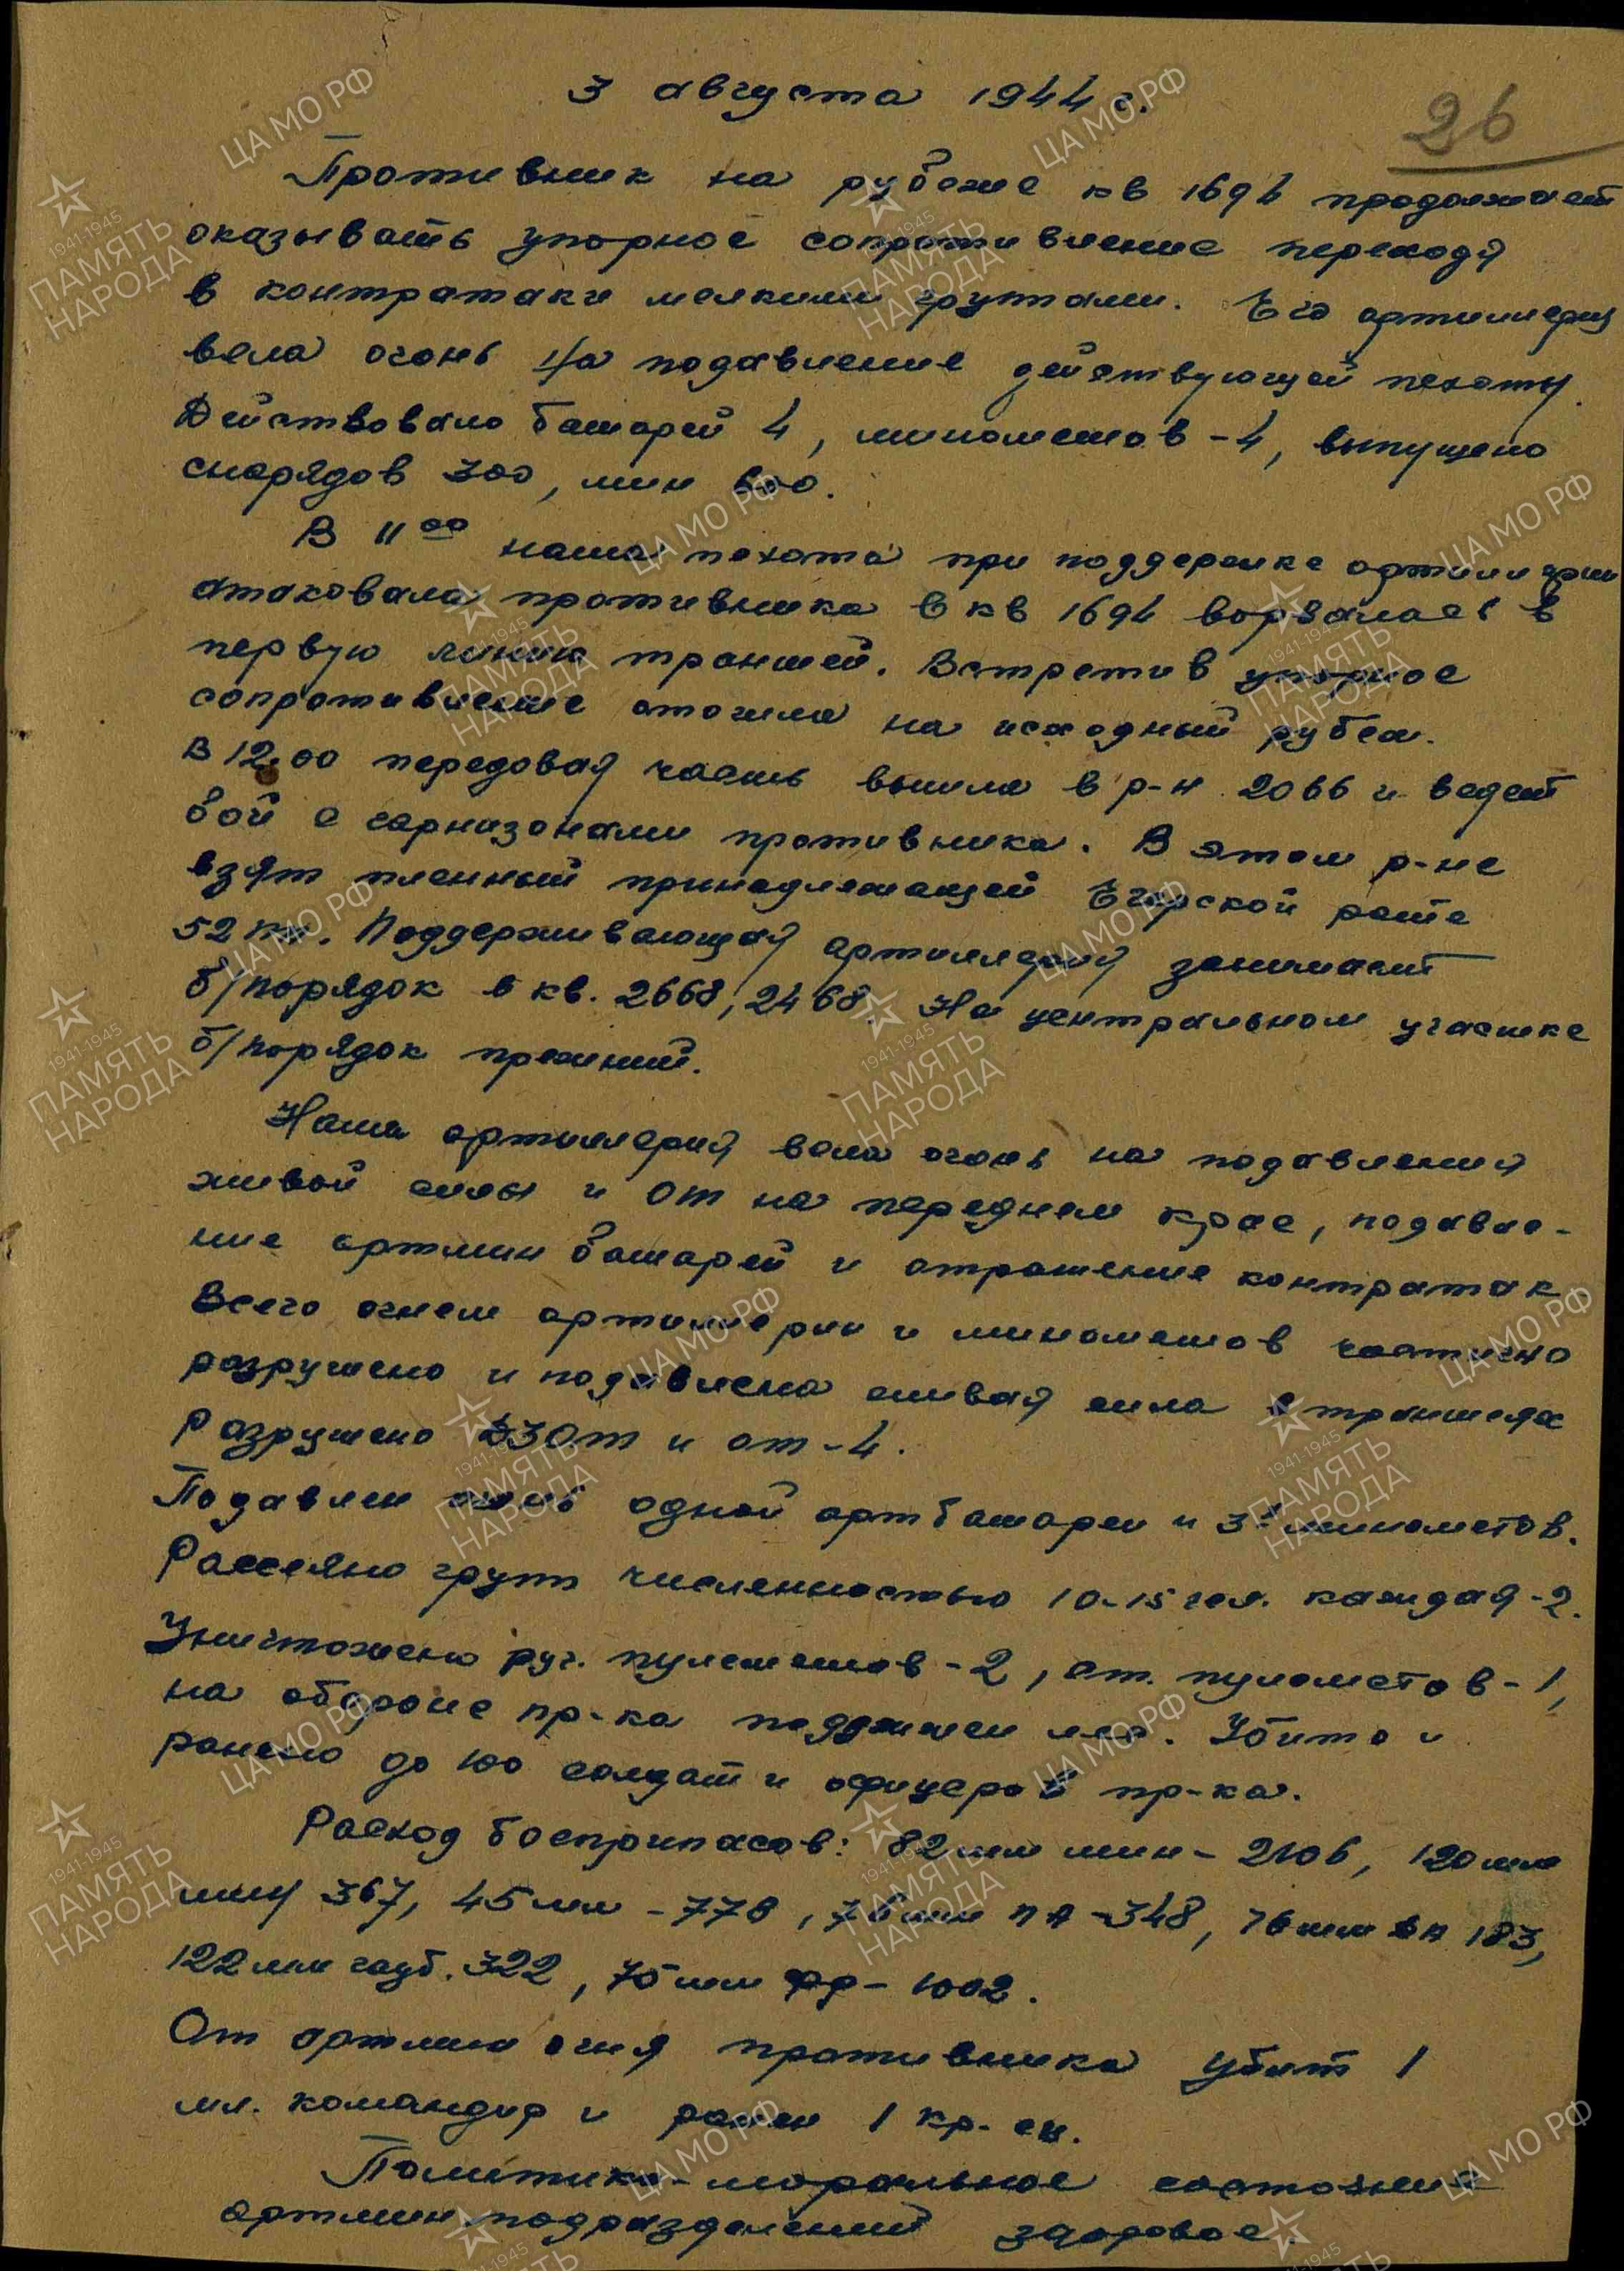 3 августа 1944 г.
26
Противник на рубеже кв 1694 продолжает
оказывать упорное сопротивление переходя
в контратаки мелкими группами. Его артиллерия
вела огонь на подавление действующей пехоты.
Действовало батарей 4, минометов - 4, выпущено
снарядов 300, мин 600.
В 11 00 наша пехота при поддержке артиллерии
атаковала противника в кв 1694 ворвалась в
первую линию траншей. Встретив упорное
сопротивление отошла на исходный рубеж.
В 12.00 передовая часть вышла в р-н 2066 и ведет
бой с гарнизонами противника. В этом р-не
взят пленный принадлежащей Егерской роте
52 пп. Поддерживающая артиллерия занимает
б/порядок в кв. 2668, 2468. На центральном участке
б/порядок прежний.
Наша артиллерия вела огонь на подавления
живой силы и ОТ на переднем крае, подавле-
ние артмин батарей и отражение контратак
Всего огнем артиллерии и минометов частично
разрушено и подавлена живая сила в траншеях
Разрушено ДЗОТ и от - 4.
Подавлен огонь одной артбатареи и 3х минометов.
Рассеяно групп численностью 10-15 чел. каждая - 2.
Уничтожено руч. пулеметов - 2, ст. пулеметов - 1,
на обороне пр-ка подожжен лес. Убито и
ранено до 100 солдат и офицеров пр-ка.
Расход боеприпасов: 82 мм мин - 2106, 120 мм
мин 367, 45 мм - 778, 76 мм ПА - 348, 76 мм ДА 183,
122 мм гауб. 322, 75 мм фр - 1002.
От артмин огня противника убит 1
мл. командир и ранен 1 кр-ец.
Политико-моральное состояние
артмин подразделений здоровое.